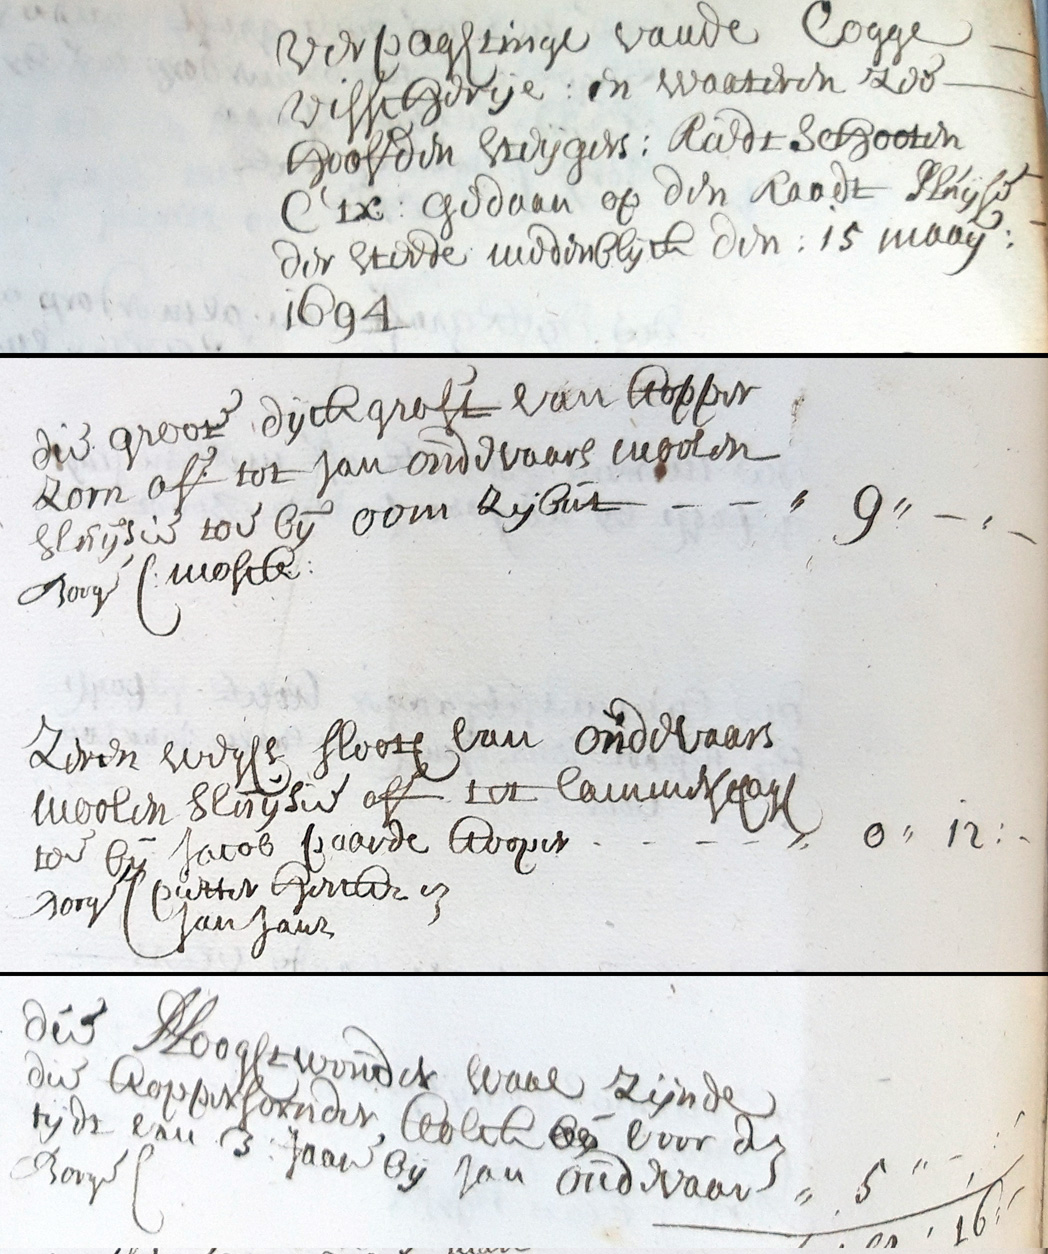 Verpaghtinge vande Cogge
Visscherije: en waateren Zoo
hoofden steijgers: Riedt schooten
Etx: gedaan op den Raadt Huijse
der steede medenblijck den: 15 maaij:
1694
die groote dijckgraft van Copper
Zorn aff tot Jan oúddvaars moolen
slúijsie toe bij oom Zijbút - - - " 9 " - , -
Borge ( moste:
Zeeven wijse sloote van oúddvaars
moolen slúijsie aff tot lammerschaage
toe bij Jacob paarde Cooper - - - - " 0 " 12: -
Borge ( pieter
Jan Jansz
die Hooghtwoúder waal Zijnde
die Coppersornder Colck voor de
tijdt van 3 Jaar bij Jan oúddvaar " 5 " - ,
Borge (
16